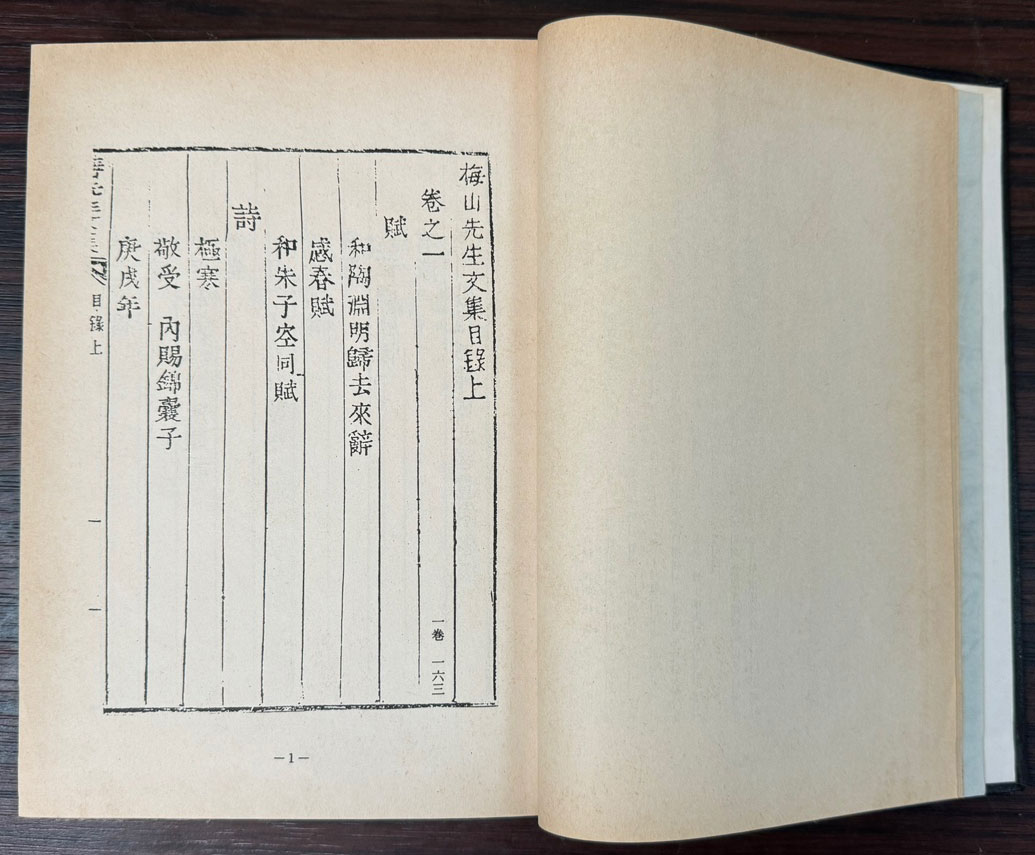 梅山先生文集目錄上
卷之一
一卷 一六三
賦
和陶淵明歸去來辭
感春賦
和朱子空同賦
詩
極寒
敬受 內賜錦囊子
庚戌年
目錄上
一
—1—